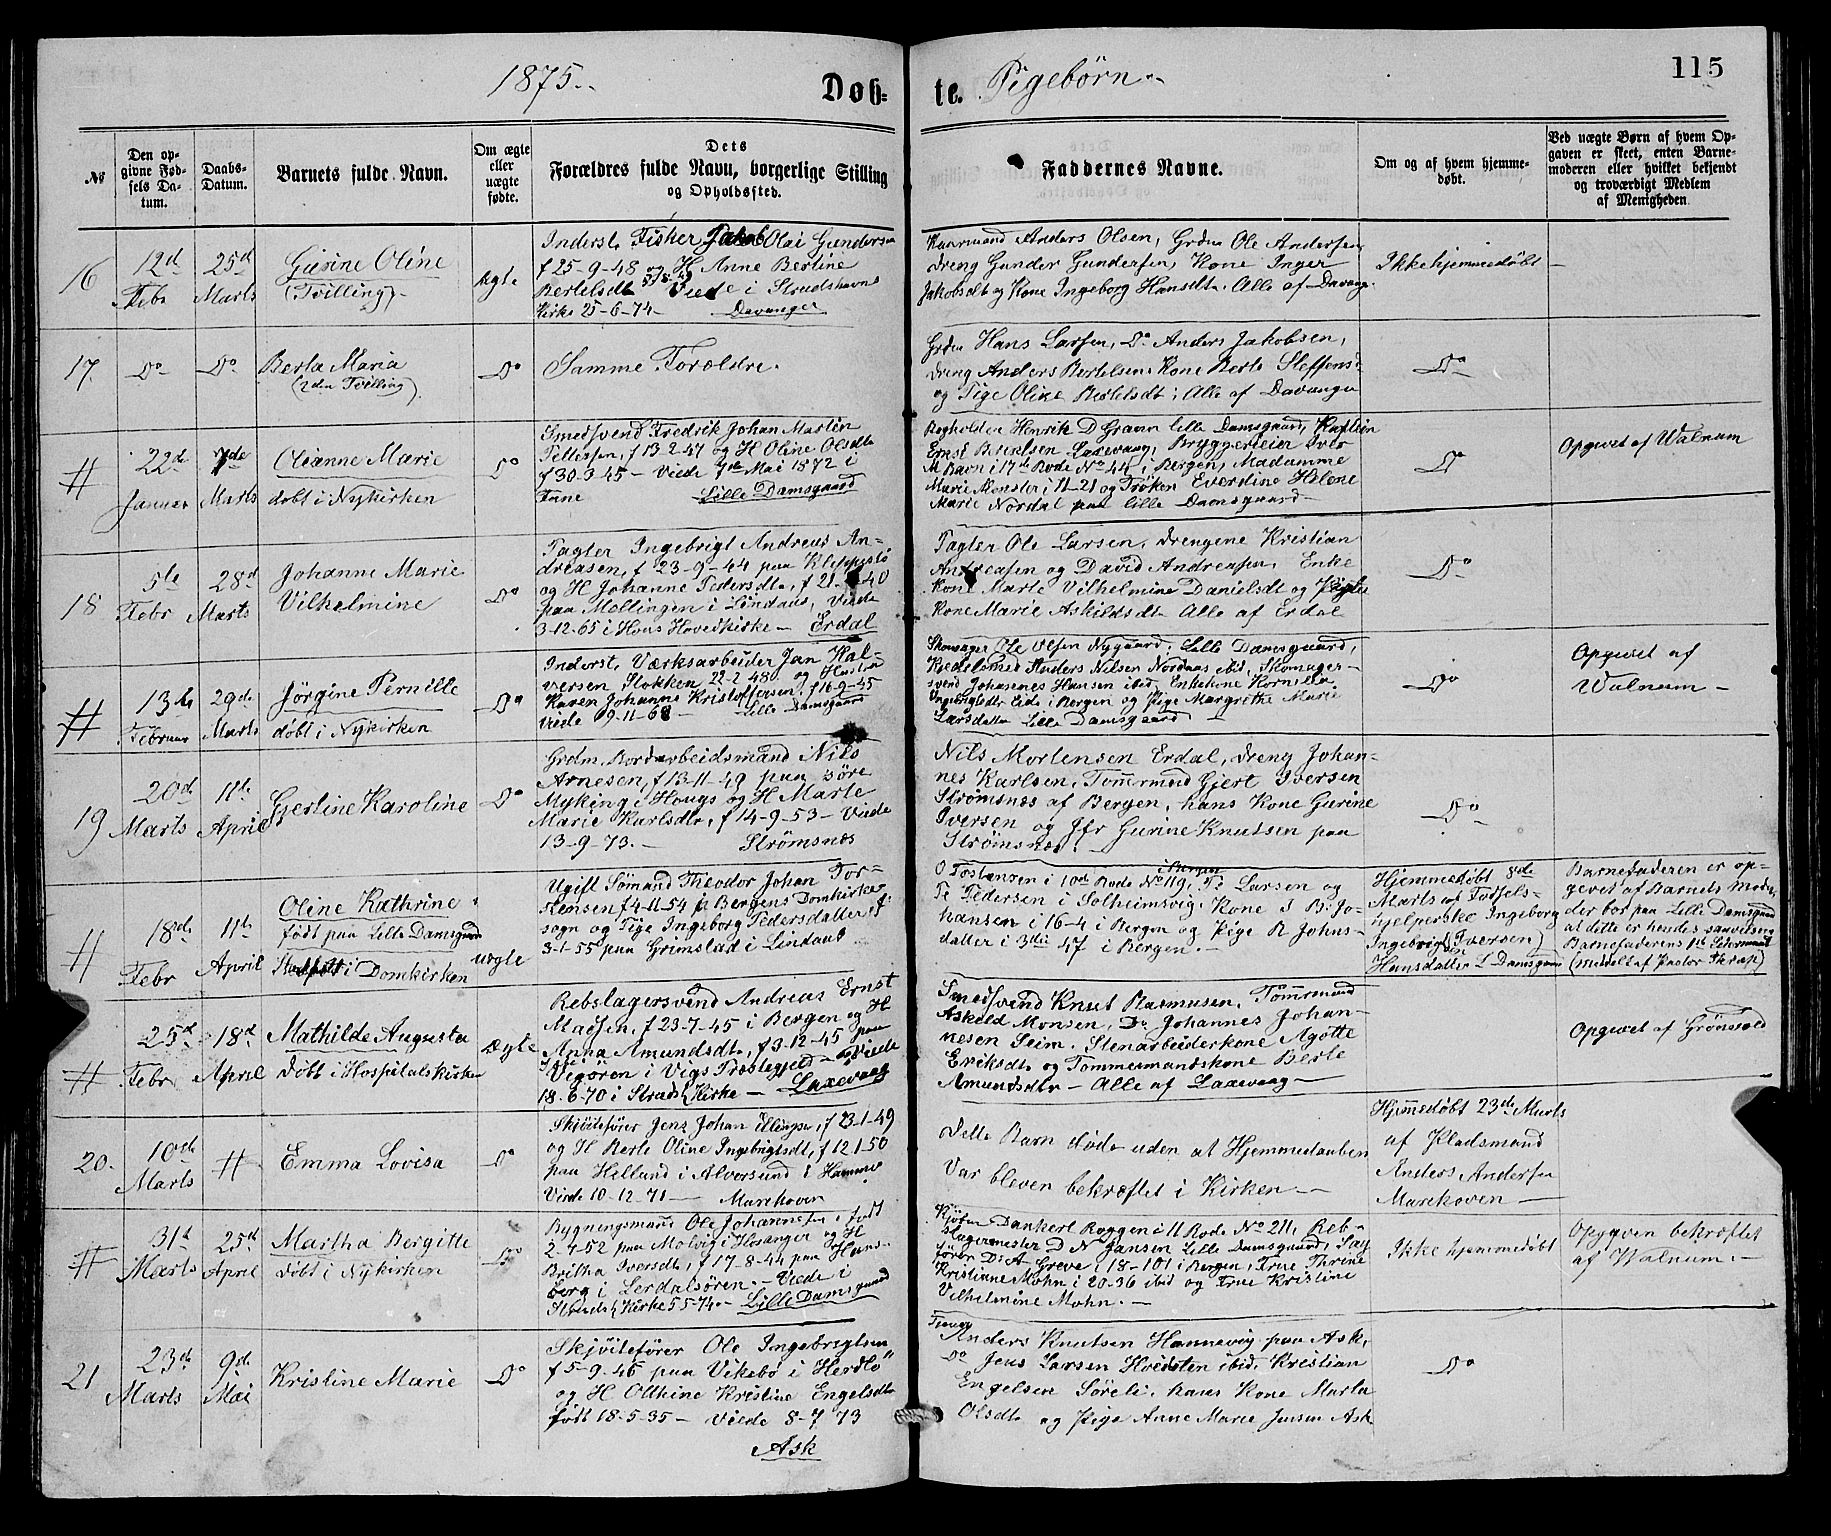 1875.
Døb-
te.
Pigebørn
115
№
Den op-
givne Fød-
sels Da-
tum.
Daabs-
Datum.
Barnets fulde Navn.
Om ægte
eller
uægte
fødte.
Dets
Forældres fulde Navn, borgerlige Stilling
og Opholdssted.
Faddernes Navne.
Om og af hvem hjemme-
døbt.
Ved uægte Børn af hvem Op-
gaven er skeet, enten Barne-
moderen eller hvilket bekjendt
og troværdigt Medlem
af Menigheden.
16
12d
Febr
25d
Marts
Gurine Oline
(Tvilling)
Ægte
Inderst Fisker Jakob Olai Gundersen
f 25-9-48 og H Anne Bertine
Bertelsdt Viede i Strudshavns
Kirke 25-6-74- Davanger
Anders Olsen, Grdm Ole Andersen,
Dreng Gunder Gundersen, Kone Inger
Jakobsdt og Kone Ingeborg Hansdt. Alle af Davange
Ikke hjemmedøbt
17.
Do
Do
Berta Maria
(2den Tvilling)
Do
Samme Forældre.
Grdm Hans Larsen, Do Anders Jakobsen,
Dreng Anders Bertelsen, Kone Berte Steffens-
og Pige Oline Bertelsdt; Alle af Davanger
Do
#
22de
Januar
7de
Marts
Olianne Marie
døbt i Nykirken
Do
Smedsvend Fredrik Johan Martin
Tellissen, f 13-2-47 og H Oline Olsdtr
f 30-3-45 - Viede 7de Mai 1872 i
Fane Lille Damsgaard
Bogholder Henrik D Grann lille Damsgaard, Kaptein
Ernst Bertelsen Laxevaag, Bryggerieier Iver
M Bavn i 17de Rode No 44 i Bergen, Madamme
Marie Monster i 11-21 og Frøken Everdine Helene
Marie Nordal paa lille Damsgaard
Do
Opgivet af Walnum
18
5te
Febr
28d
Marts
Johanne Marie
Vilhelmine
Do
Pagter Ingebrigt Andreas An-
dreasen, f 23-9-44 paa Kleppestø
og H Johanne Pedersdt, f 21- 40
paa Mollingen i Lindaas, Viede
3-12-65 i Hous Hovedkirke - Erdal
Pagter Ole Larsen, Drengene Kristian
Andreasen og David Andreasen, Enke
Kone Marte Vilhelmine Danielsdt og
Kone Marie Askildsdt Alle af Erdal
Do
#
13de
Februar
29de
Marts
Jörgine Pernille
døbt i Nykirken
Do
Inderst, Værksarbeider Jan Hal-
versen Stokken 22-2-48 og Hustru
Karen Johanne Kristoffersen, f 16-9-45
Viede 9-11-68 - Lille Damsgaard
Skomager Ole Olsen Nygaard, Lille Damsgaard,
Kjedelsmed Anders Nilsen Nordnæs ibid, Skomager-
svend Johannes Hansen ibid, Enkekone Kornilia
Lide i Bergen og Pige Margrethe Marie
Larsdatter Lille Damsgaard
Do
Opgivet af
Walnum -
19
20d
Marts
11te
April
Gjertine Karoline
Do
Grdm, Jordarbeidsmand Nils
Arnesen, f 13-11-49 paa søre
Myking i Hougs og H Marte
Marie Karlsdtr, f 14-9-53 - Viede
13-9-73.- Strømsnæs
Nils Mortensen Erdal, Dreng Johan-
nes Karlsen, Tømermand Gjert Iversen
Strømsnæs af Bergen, hans Kone Gurine
Iversen og Jfr Gurine Knutsen paa
Strømsnæs.
Do
#
18de
Febr
11te
April
Oline Kathrine
født paa Lille Damsgaard
i Domkirken
uægte
Ugift Sømand Theodor Johan Tor-
stensen f 4-11-54 p Bergens Domkirke
sogn og Pige Ingeborg Pedersdatter f
3-1-55 paa Grimstad i Lindaas
O Tostensen i 10d Rode No 119 i Bergen, Larsen og
Pedersen i Solheimsvig, Kone J B. Jo-
hansen i 16-4 i Bergen og Pige R Johns-
datter i 3die 47 i Bergen. -
Hjemmedøbt 8de
Marts af Fødsels-
hjelperske Ingeborg
Ingebrigt (Iversen)
Hansdatter L Damsgaard
Barnefaderen er op-
givet af Barnets Mode
der bor paa Lille Damsgaard
at dette er hendes
Barnefaderens 1ste
(meddelt af Pastor
#
25d
Febr
18d
April
Mathilde Augusta
Døbt i Hospitalskirken
Ægte
Rebslagersvend Andreas Ernst
Madsen, f 23-7-45 i Bergen og H
Anna Amundsdt, f 3-12-45 paa
Vigören i Vigs Præstegjeld - Viede
18-6-70 i Strudsh Kirke - Laxevaag
Smedsvend Knut Rasmusen, Tømermand
Askeld Monsen, Do Johannes Johan-
nesen Seim, Stenarbeiderkone Agotte
Eriksdt og Tommermandskone Berte
Amundsdtr - Alle af Laxevaag -
Opgivet af Grönvold
20.
10de
Marts
#
Emma Lovisa
Do
Skjöitefører Jens Johan Ellingsen, f 23-1-49
og H Berte Oline Ingebrigtsdt, f 12 1-50
paa Helland i Alversund i Hammer
Viede 10-12-71 - Marikoven
Dette Barn døde uden at Hjemmedaaben
Var bleven bekræftet i Kirken -
Hjemedøbt 23de Marts
af Pladsmand
Anders Andersen
Marikoven -
#
31d
Marts
25d
April
Martha Bergitte
døbt i Nykirken
Do
Bygningsmand Ole Johannesen, født
2-4-52 paa Molvig i Hosanger og H
Britha Iversdt, f 17-8-44 paa
borg i Lerdalsören. - Viede i
Strudsh Kirke 5-5-74.- Lille Damsgaard
Dankert Roggen i 11 Rode No 211, Reb-
slagermester D N Jansen Lille Damsgaard, Sag
förer D: A Greve i 18-101 i Bergen, Frue Thrine
Kristiane Mohn i 20-36 ibid og Frue Kristine
Vilhelmine Mohn. -
Ikke hjemmedøbt
Opgaven bekræftet
af Walnum. -
21
23d
Marts
9de
Mai
Kristine Marie
Do
Skjöitefører Ole Ingebrigtsen
f 5-9-46 paa Vikebø i Herdlø
og H Olthine Kristine Engelsdtr
født 18-5-35 - Viede 8-7 73
Ask
Anders Knutsen Hannevig paa Ask,
Do Jens Larsen Hvidsten ibid, Kristian
Engelsen Søreli, hans Kone Marta
Olsdt og Pige Anne Marie Jensen Ask
Do